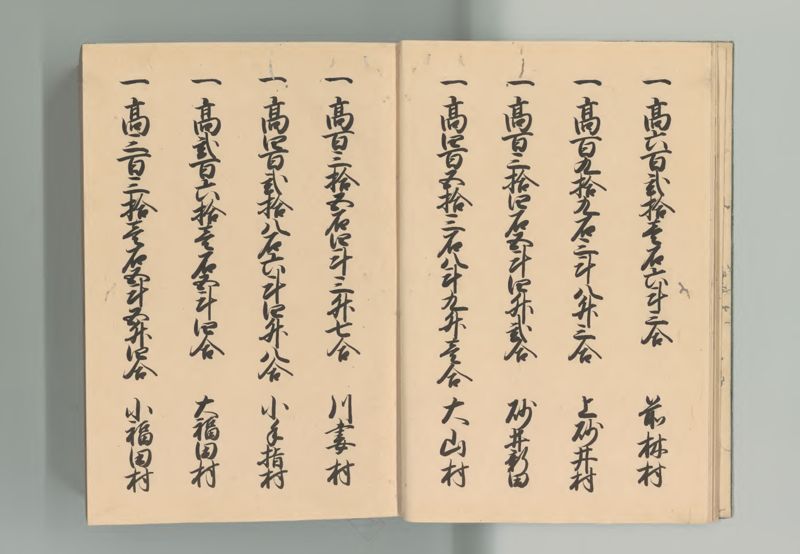 一 高六百弐拾壱石六斗三合 前林村
一 高百九拾九石三斗八升三合 上砂井村
一 高百三拾四石五斗四升弐合 砂井新田
一 高四百五拾三石八斗九升壱合 大山村
一 高百三拾五石四斗三升七合 川妻村
一 高四百弐拾八石六斗四升八合 小手指村
一 高弐百六拾壱石五斗四合 大福田村
一 高三百三拾壱石五斗五升四合 小福田村